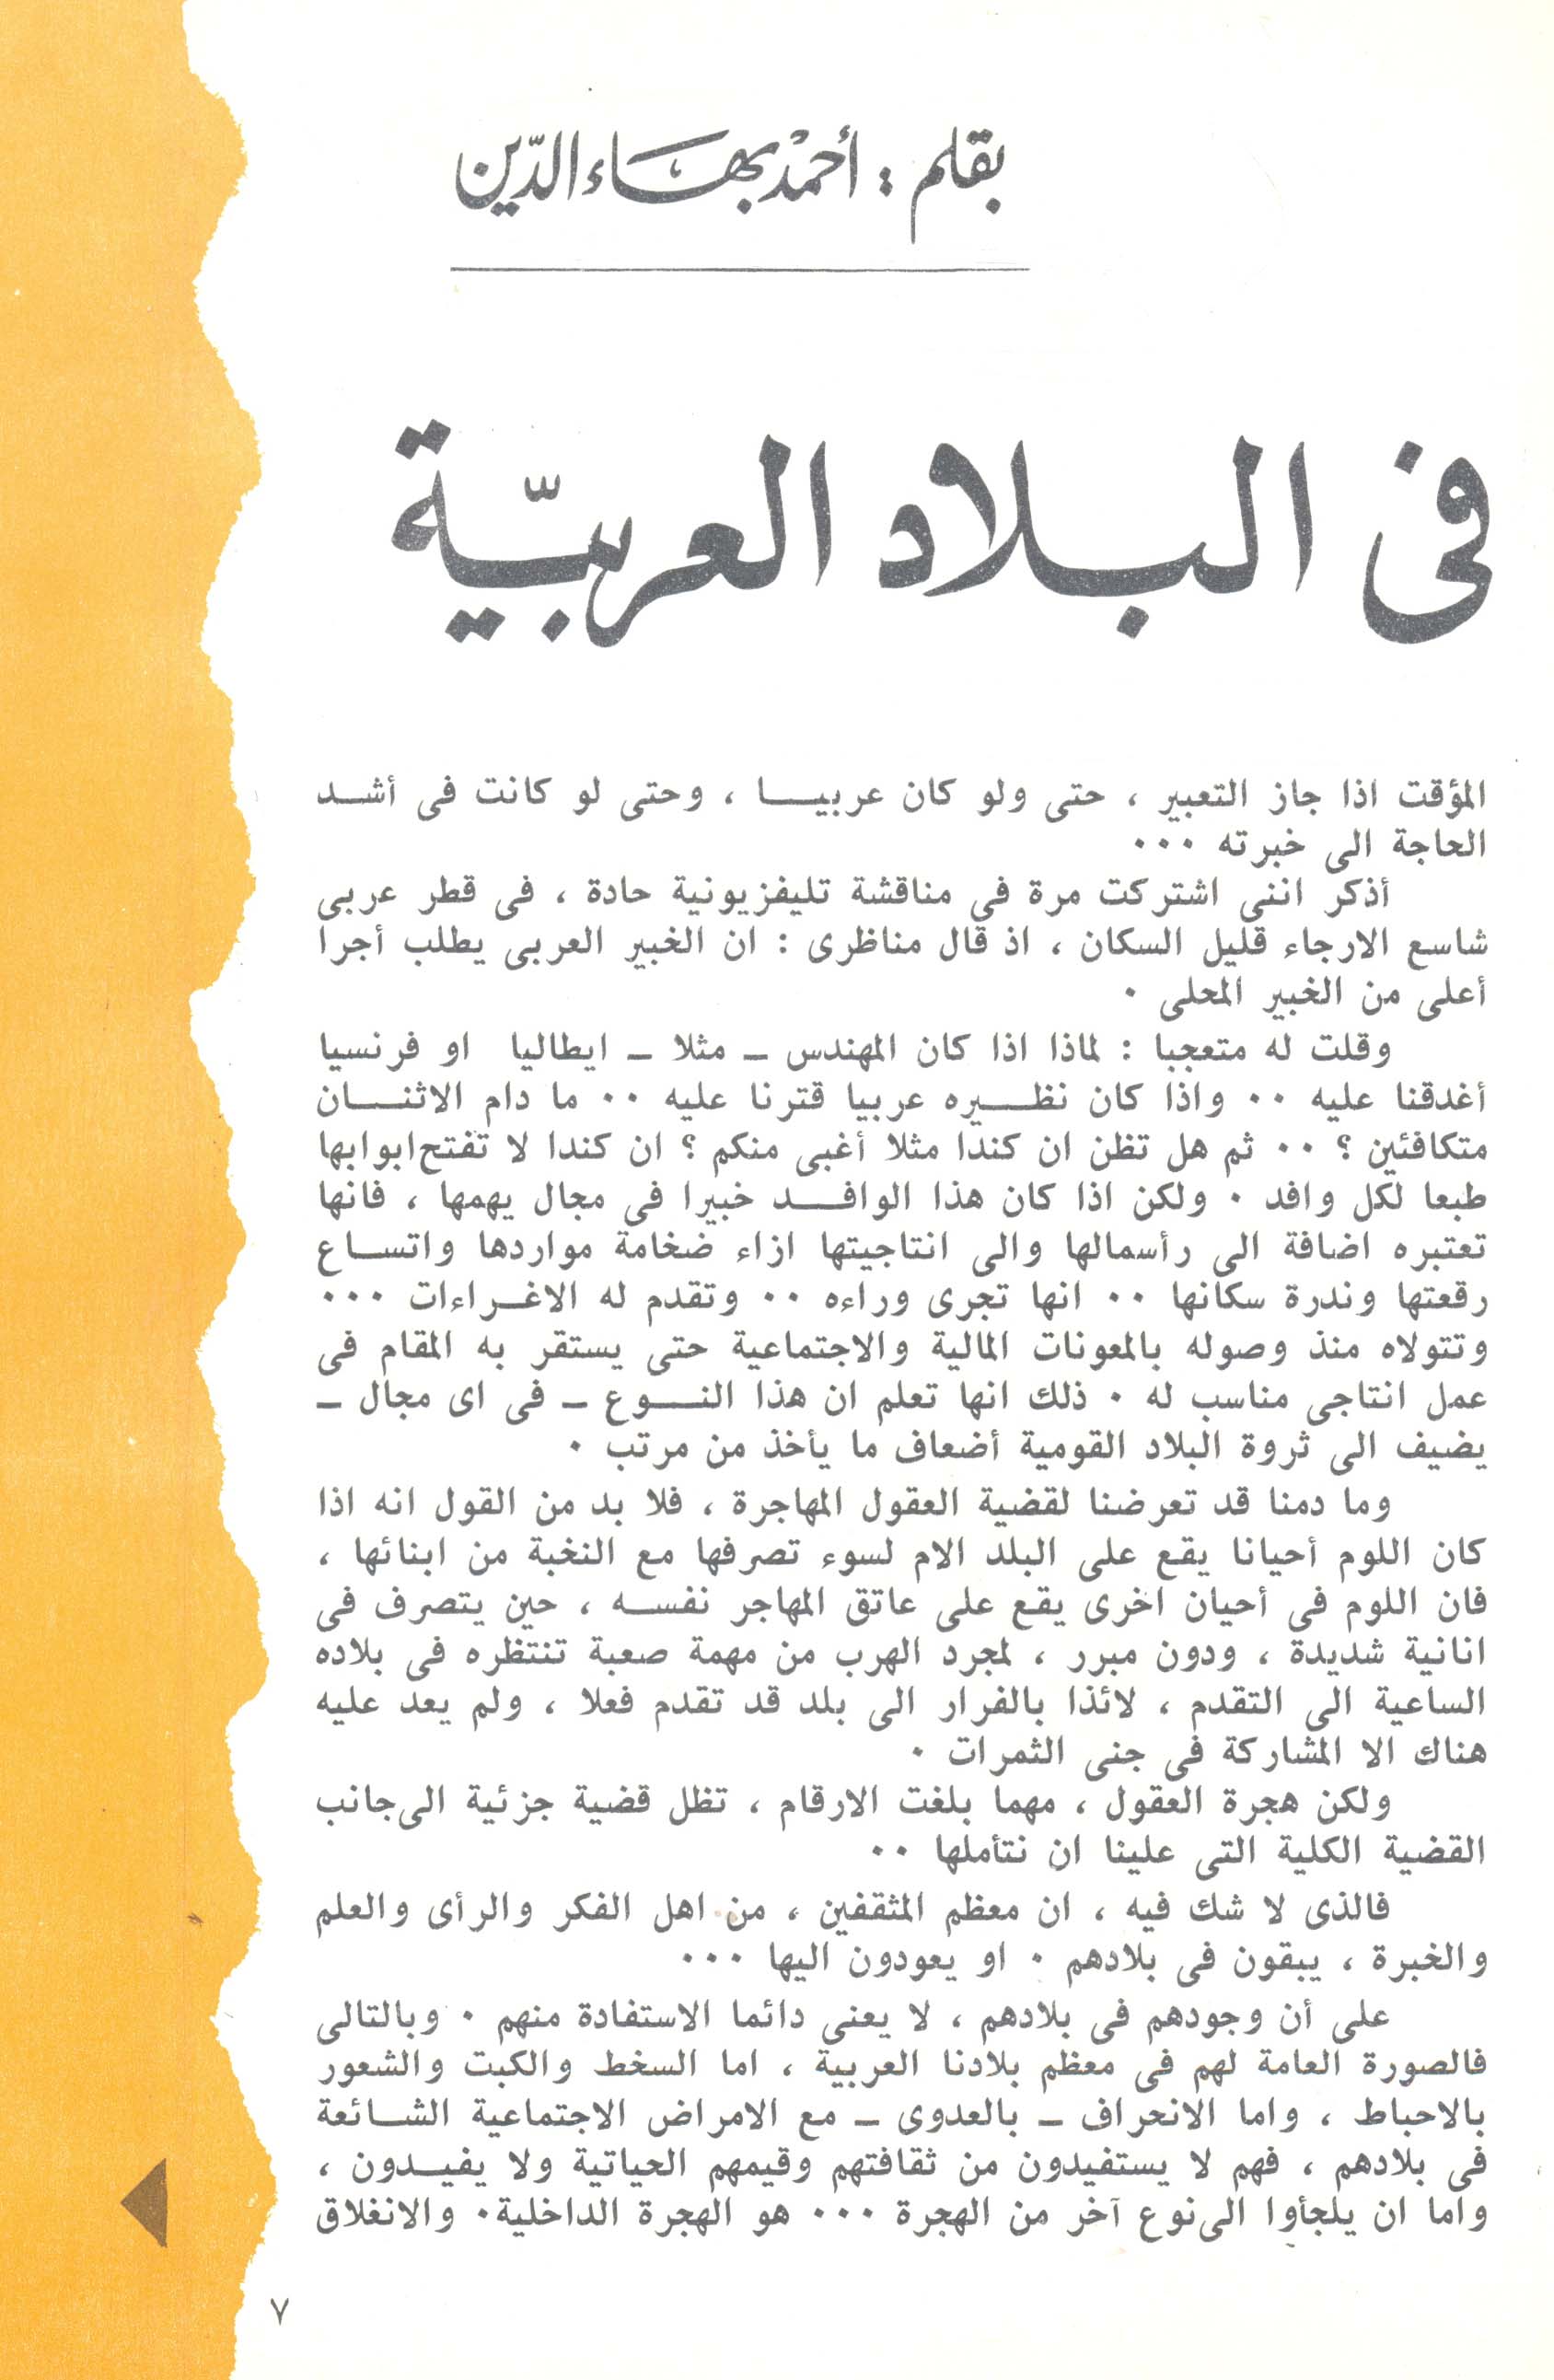 بقلم : أحمد بهاء الدّين
فى البلاد العربيّة
المؤقت اذا جاز التعبير ، حتى ولو كان عربيا ، وحتى لو كانت فى أشد
الحاجة الى خبرته ٠٠٠
أذكر اننى اشتركت مرة فى مناقشة تليفزيونية حادة ، فى قطر عربى
شاسع الارجاء قليل السكان ، اذ قال مناظرى : ان الخبير العربى يطلب أجرا
أعلى من الخبير المحلى ٠
وقلت له متعجبا : لماذا اذا كان المهندس ــ مثلا ــ ايطاليا او فرنسيا
أغدقنا عليه ٠٠ واذا كان نظيره عربيا قترنا عليه ٠٠ ما دام الاثنان
متكافئين ؟ ٠٠ ثم هل تظن ان كندا مثلا أغبى منكم ؟ ان كندا لا تفتح ابوابها
طبعا لكل وافد ٠ ولكن اذا كان هذا الوافد خبيرا فى مجال يهمها ، فانها
تعتبره اضافة الى رأسمالها والى انتاجيتها ازاء ضخامة مواردها واتساع
رقعتها وندرة سكانها ٠٠ انها تجرى وراءه ٠٠ وتقدم له الاغراءات ٠٠٠
وتتولاه منذ وصوله بالمعونات المالية والاجتماعية حتى يستقر به المقام فى
عمل انتاجى مناسب له ٠ ذلك انها تعلم ان هذا النوع ــ فى اى مجال ــ
يضيف الى ثروة البلاد القومية أضعاف ما يأخذ من مرتب ٠
وما دمنا قد تعرضنا لقضية العقول المهاجرة ، فلا بد من القول انه اذا
كان اللوم أحيانا يقع على البلد الام لسوء تصرفها مع النخبة من ابنائها ،
فان اللوم فى أحيان اخرى يقع على عاتق المهاجر نفسه ، حين يتصرف فى
انانية شديدة ، ودون مبرر ، لمجرد الهرب من مهمة صعبة تنتظره فى بلاده
الساعية الى التقدم ، لائذا بالفرار الى بلد قد تقدم فعلا ، ولم يعد عليه
هناك الا المشاركة فى جنى الثمرات ٠
ولكن هجرة العقول ، مهما بلغت الارقام ، تظل قضية جزئية الى جانب
القضية الكلية التى علينا ان نتأملها ٠٠
فالذى لا شك فيه ، ان معظم المثقفين ، من اهل الفكر والرأى والعلم
والخبرة ، يبقون فى بلادهم ٠ او يعودون اليها ٠٠٠
على أن وجودهم فى بلادهم ، لا يعنى دائما الاستفادة منهم ٠ وبالتالى
فالصورة العامة لهم فى معظم بلادنا العربية ، اما السخط والكبت والشعور
بالاحباط ، واما الانحراف ــ بالعدوى ــ مع الامراض الاجتماعية الشائعة
فى بلادهم ، فهم لا يستفيدون من ثقافتهم وقيمهم الحياتية ولا يفيدون ،
واما ان يلجأوا الى نوع آخر من الهجرة ٠٠٠ هو الهجرة الداخلية٠ والانغلاق
٧